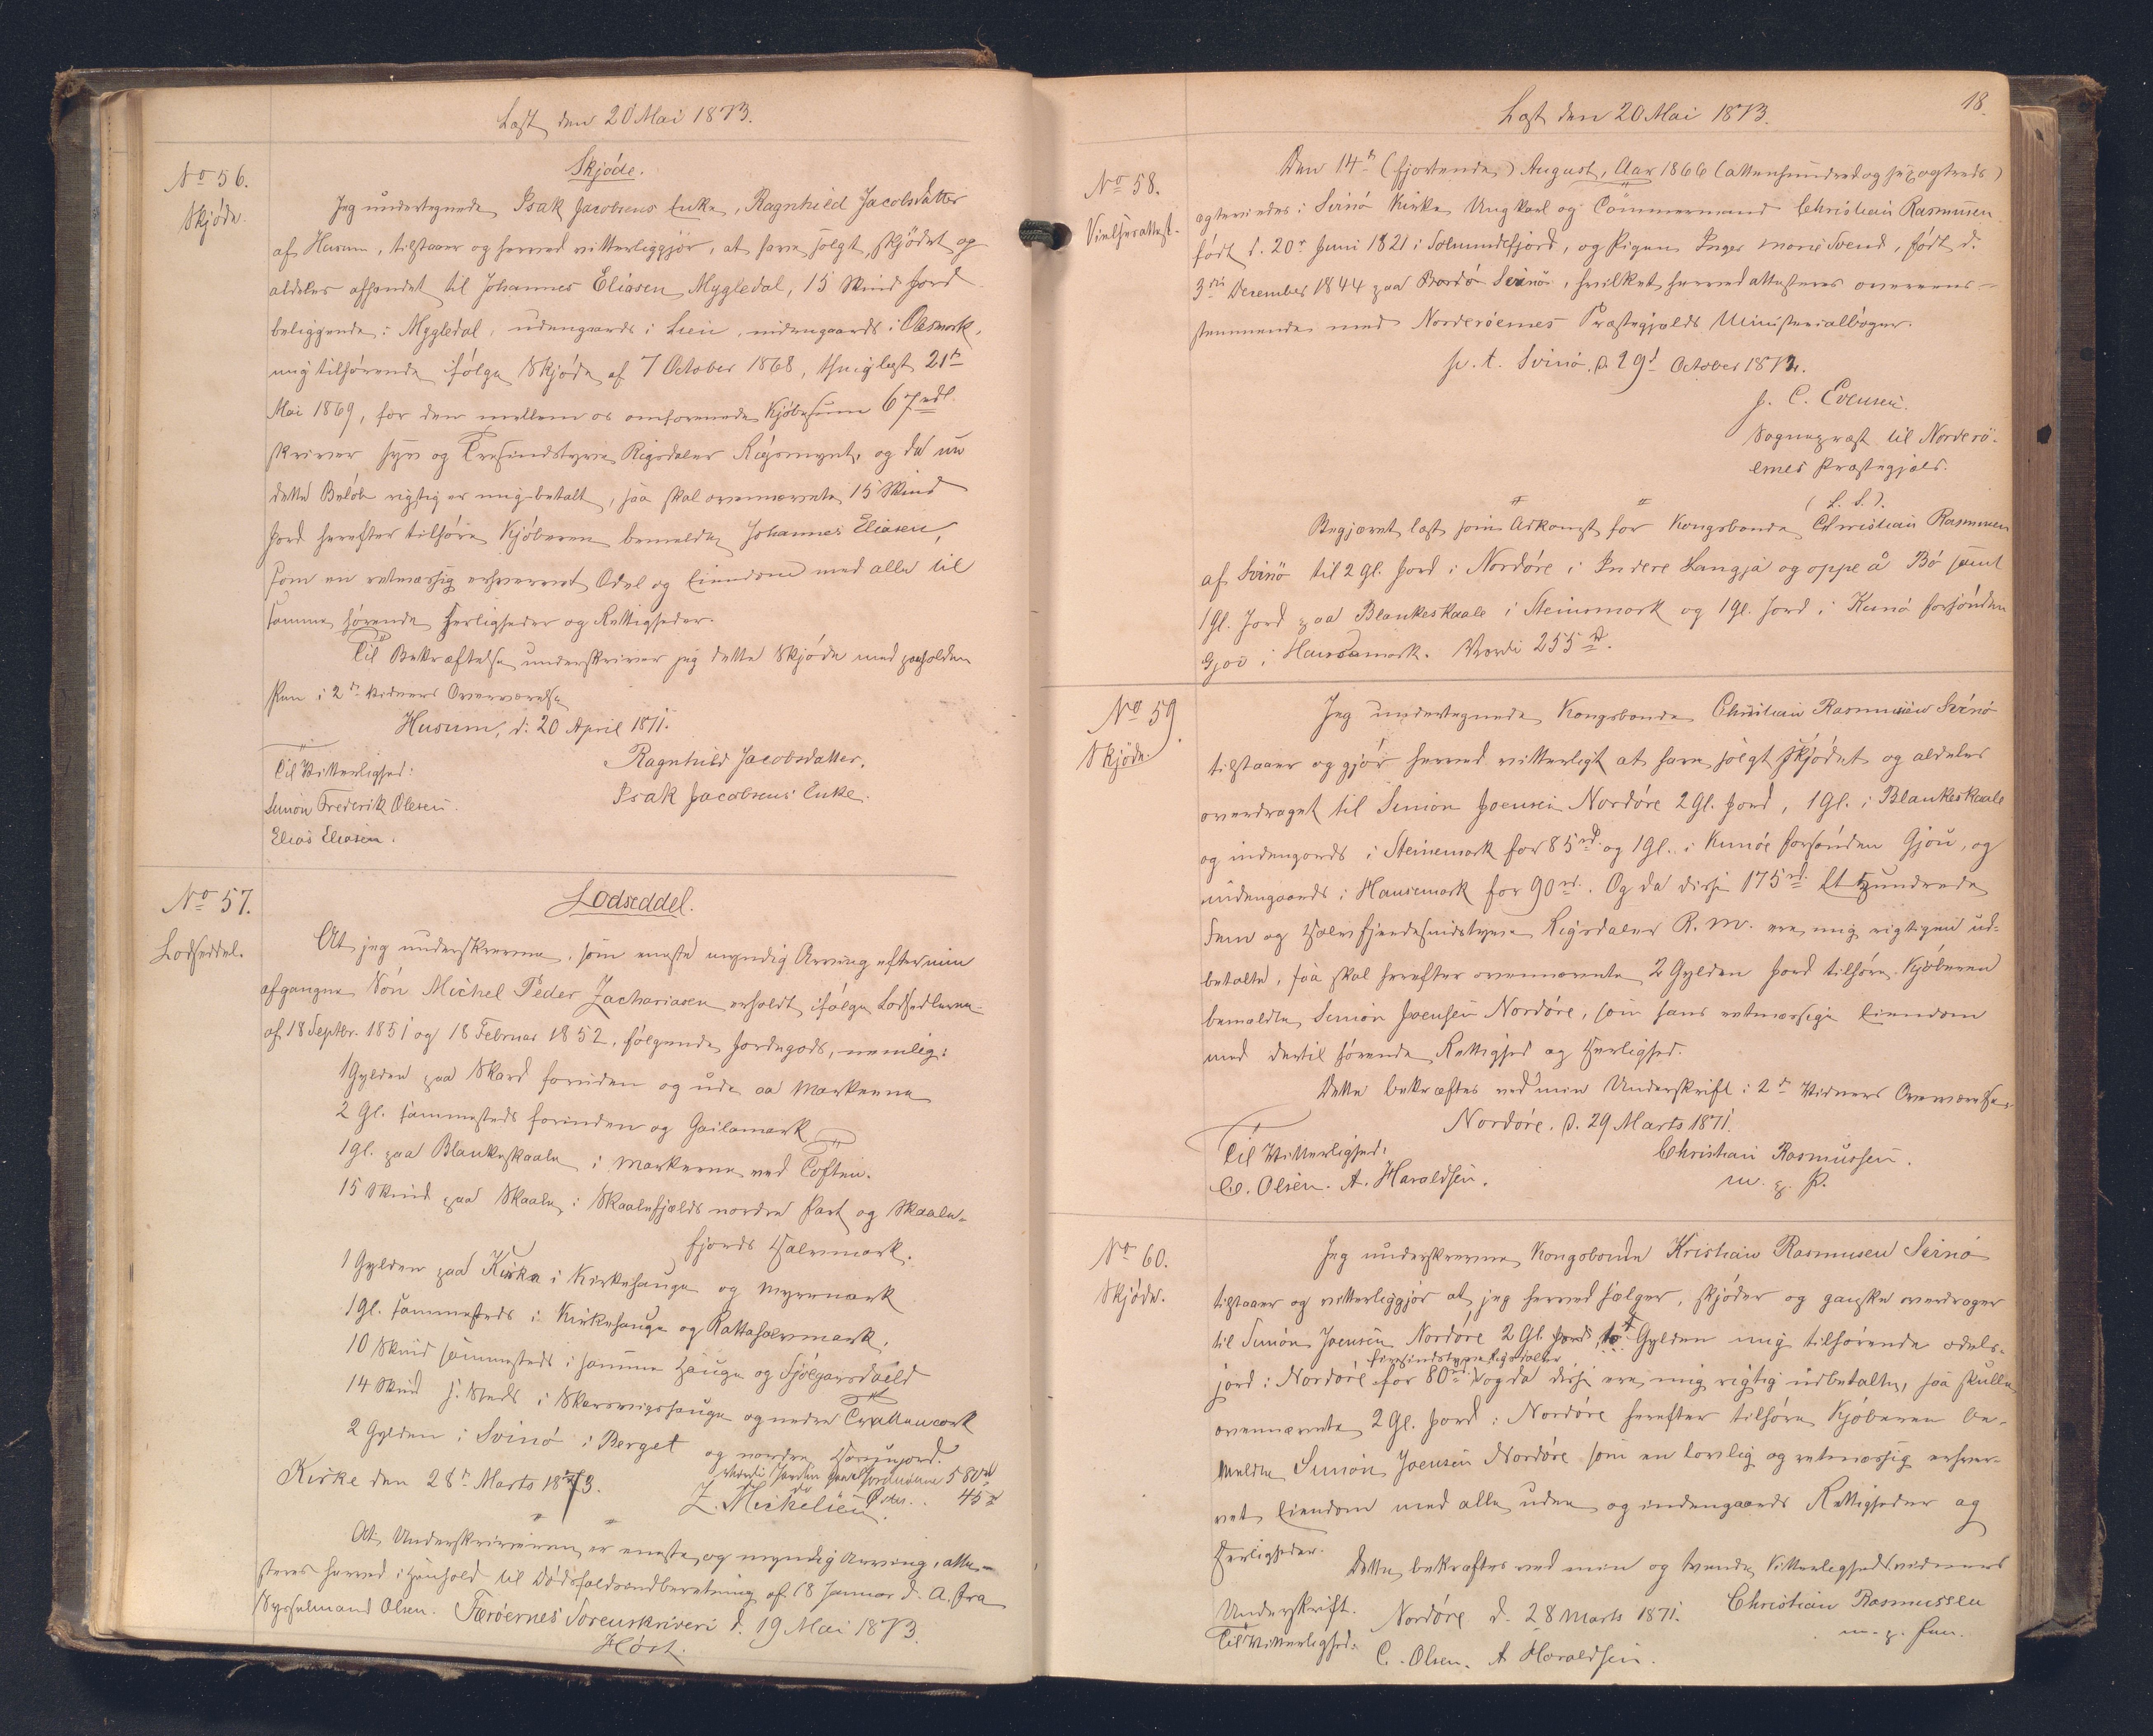 Læst den 20 Mai 1873.
No 56.
Skjøde.
Skjøde.
Jeg undertegnede Isak Jacobsens Enke, Ragnhild Jacobsdatter
af Husum, tilstaaer og herved vitterliggjör, at have solgt, skjödet og
aldeles afhændet til Johannes Eliasen Mygledal, 15 Skind Jord
beliggende i Mygledal, udengaards i Lien, indengaards i Olesmork,
mig tilhörende ifölge Skjöde af 7 October 1868, thinglæst 21de
Mai 1869, for den mellem os omforenede Kjöbesum 67 rdl.
skriver syv og Tresindstyve Rigsdaler Rigsmynt, og da nu
dette Belöb rigtig er mig betalt, saa skal ovennævnte 15 Skind
Jord herefter tilhöre Kjöberen bemeldte Johannes Eliasen,
som en retmæssig erhvervet Odel og Eiendom med alle til
samme hörende Herligheder og Rettigheder.
Til Bekræftelse underskriver jeg dette Skjöde med paaholden
Pen i 2de Vidners Overværelse
Husum, d. 20 April 1871.
Til Vitterlighed:
Ragnhild Jacobsdatter.
Simon Frederik Olesen.
Isak Jacobsens Enke.
Elias Eliasen.
No 57.
Lodseddel.
Lodseddel.
At jeg underskrevne, som eneste myndig Arving efter min
afgangne Sön Michel Peder Zachariasen erholdt ifölge Lodsedlerne
af 18 Septbr. 1851 og 18 Februar 1852, fölgende Jordegods, nemlig:
1 Gylden paa Skard foruden og ude aa Markerne
2 Gl. sammesteds forinden og Gailamark
1 gl. paa Blankeskaale i Markerne ved Toften.
15 Skind paa Skaale i Skaalefjælds nordre Part og Skaale-
fjords Halvmark.
1 Gylden paa Kirke i Kirkehauge og Myremark
1 Gl. sammesteds i Kirkehauge og Rattahalvmark.
10 Skind sammesteds i samme Hauge og Fjölgarsdæld
14 Skind s. Steds i Skarsvigshauge og nedre Trættemork
2 Gylden i Svinö i Berget og nordre
Værdi Jorden paa 580 rd
Kirke den 28de Marts 1873.
do Öster. 45 rd
Z. Michelsen
At Underskriveren er eneste og myndig Arving, atte-
steres herved i Henhold til Dödsfaldsindberetning af 18 Januar d. A. fra
Sysselmand Olsen. Færöernes Sorenskriveri d. 19 Mai 1873.
Höst.
Læst den 20 Mai 1873.
18.
No 58.
Vielsesattest.
Den 14de (fjortende) August, Aar 1866 (attenhundred og sex og treds)
egteviedes i Svinö Kirke Ungkarl og Tömmermand Christian Rasmussen
født d. 20de Juni 1821 i Solmundefjord, og Pigen Inger Marie Svend, født d.
3die December 1844 paa Bordö Svinö, hvilket herved attesteres overeens-
stemmende med Norderöernes Præstegjælds Ministerialböger.
p. t. Svinö, d. 29d October 1872.
J. C. Evensen.
Sognepræst til Norderö-
ernes Præstegjæld.
(L. S.).
Begjæret læst som Adkomst for Kongsbonde Christian Rasmussen
af Svinö til 2 gl. Jord i Nordöre i Indere Hangja og oppe á Bö samt
1 Gl. Jord paa Blankeskaale i Steinsmork og 1 Gl. Jord i Kunö forsönden
Gjov i Hansamork. Værdi 255 rd.
No 59.
Skjöde.
Jeg undertegnede Kongsbonde Christian Rasmussen Svinö
tilstaaer og gjör herved vitterligt at have solgt skjödet og aldeles
overdraget til Simon Joensen Nordöre 2 Gl. Jord, 1 Gl. i Blankeskaale
og indengaards i Steinemork for 85 rd. og 1 Gl. i Kunöe forsönden Gjov, og
indengaards i Hansemork for 90 rd. Og da disse 175 rd. Et Hundrede
Fem og Halvfjerdesindstyve Rigsdaler R. M. ere mig rigtigen ud-
betalte, saa skal herefter ovennævnte 2 Gylden Jord tilhöre Kjöberen
bemeldte Simon Joensen Nordöre, som hans retmæssige Eiendom
med dertil hörende Rettighed og Herlighed.
Dette bekræftes ved min Underskrift i 2de Vidners Overværelse
Nordöre, d. 29 Marts 1871.
Til Vitterlighed:
Christian Rasmussen.
C. Olsen. A. Haraldsen.
m. p. P.
No 60.
Skjöde.
Jeg underskrevne Kongsbonde Kristian Rasmusen Svinö
tilstaaer og vitterliggjör at jeg herved sælger, skjöder og ganske overdrager
til Simon Joensen Nordöre 2 Gl. Jord, to Gylden mig tilhörende odels-
firesindstyve Rigsdaler
jord i Nordöre for 80 rd. og da disse ere mig rigtig udbetalte, saa skulle
ovennævnte 2 Gl. Jord i Nordöre herefter tilhöre Kjöberen be-
meldte Simon Joensen Nordöre som en lovlig og retmæssig erhver-
vet Eiendom med alle uden og indengaards Rettigheder og
Herligheder.
Dette bekræftes ved min og tvende Vitterlighedsvidners
Underskrift. Nordöre d. 28 Marts 1871. Christian Rasmussen
Til Vitterlighed:
m. p. Pen.
C. Olsen. A Haraldsen.